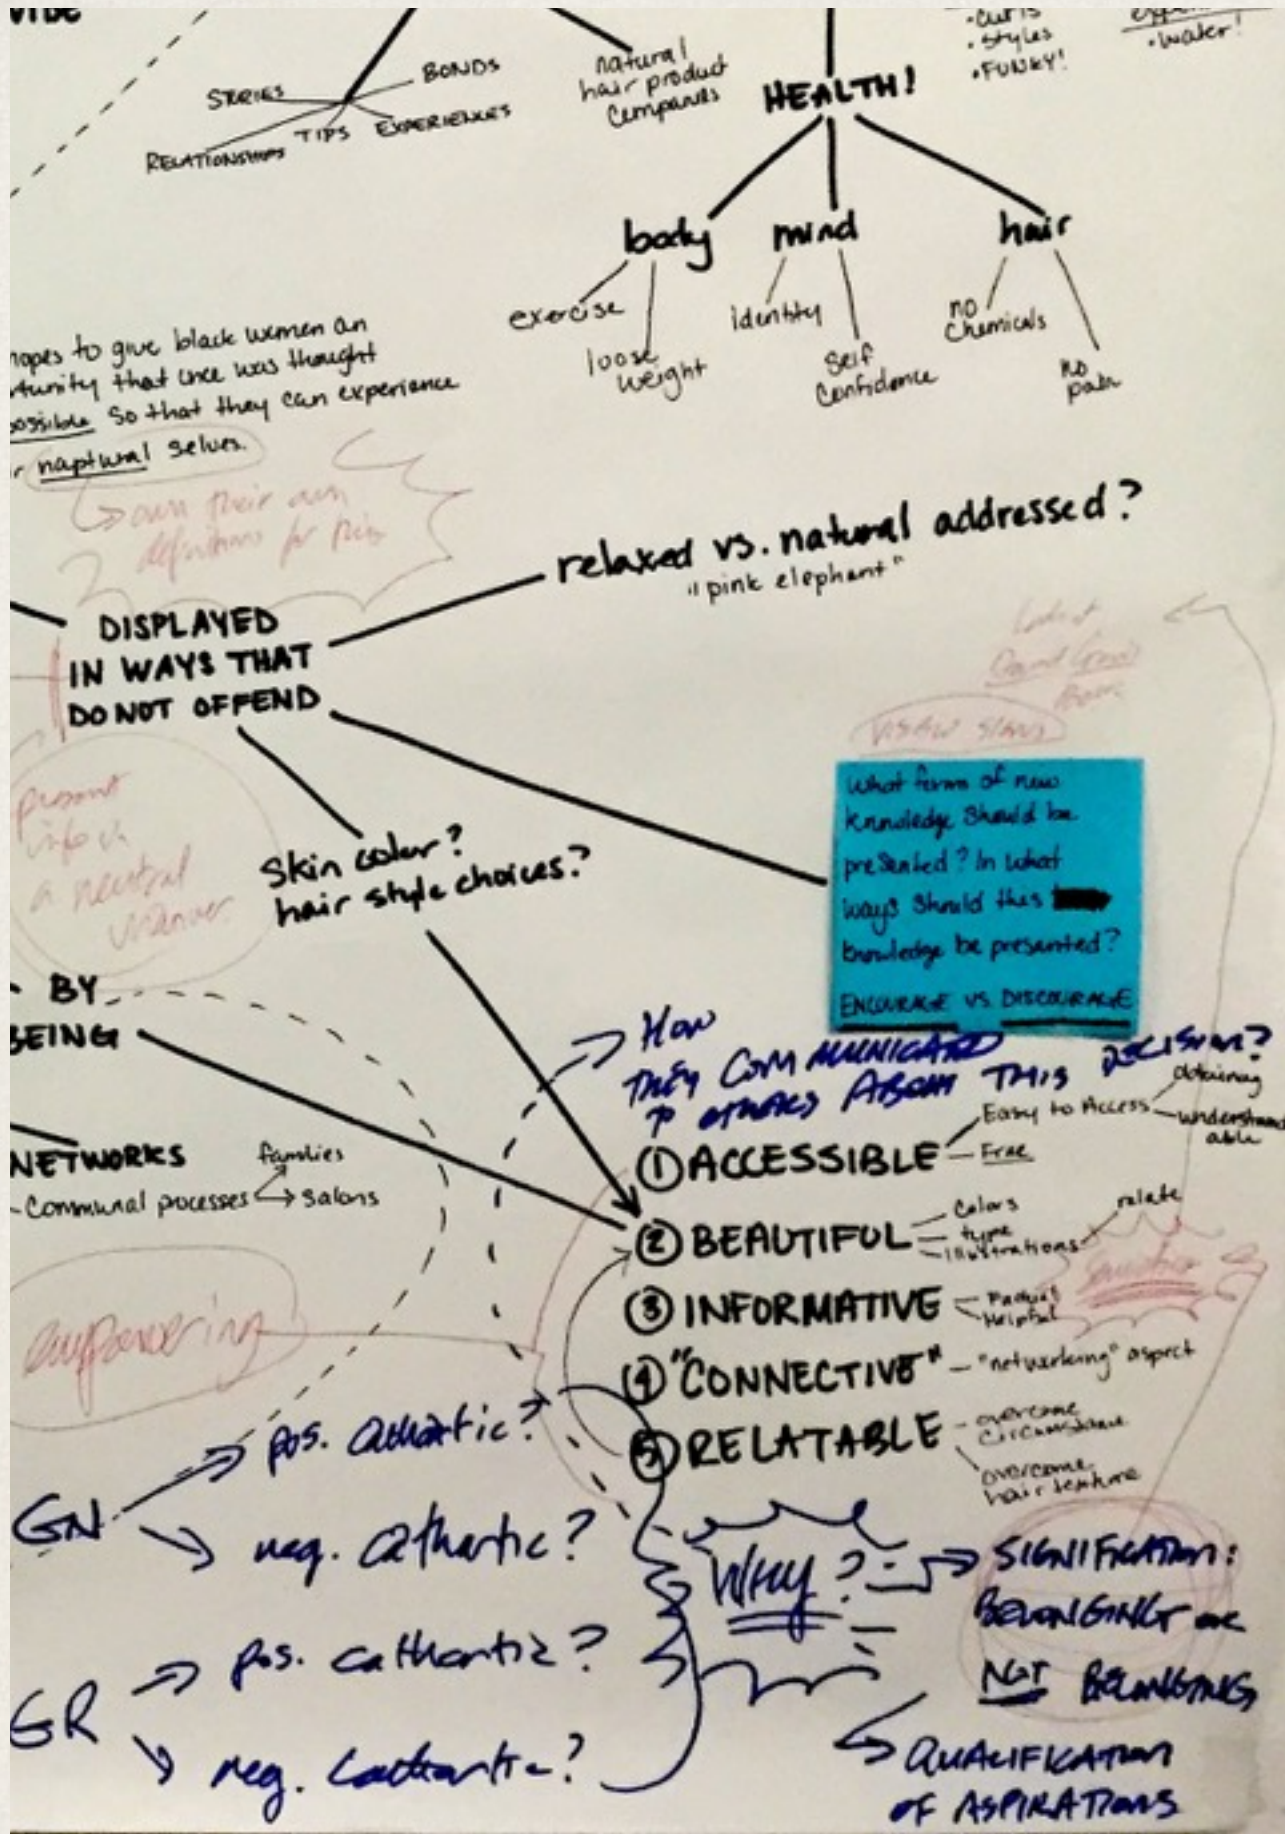 • Styles
• FUNKY!
• water!
STORIES
BONDS
TIPS
EXPERIENCES
RELATIONSHIPS
natural
hair product
Companies
HEALTH!
body
mind
hair
exercise
loose
weight
identity
self
confidence
no
chemicals
no
pain
hopes to give black women an
that once was thought
so that they can experience
naptural selves.
own their own
definitions for this
relaxed vs. natural addressed?
"pink elephant"
DISPLAYED
IN WAYS THAT
DO NOT OFFEND
present
info in
a neutral
manner
Skin color?
hair style choices?
What forms of new
knowledge should be
presented? In what
ways should this
knowledge be presented?
ENCOURAGE VS. DISCOURAGE
BY
BEING
NETWORKS
- Communal processes
families
salons
HOW
THEY COMMUNICATED
TO OTHERS ABOUT THIS DECISION?
① ACCESSIBLE
Easy to Access
obtaining
understand
able
Free
② BEAUTIFUL
colors
type
illustrations
relate
③ INFORMATIVE
Factual
Helpful
④ "CONNECTIVE" - "networking" aspect
⑤ RELATABLE
overcome
circumstance
overcome
hair texture
empowering
GN
pos. cathartic?
neg. cathartic?
GR
pos. cathartic?
neg. cathartic?
WHY?
SIGNIFICATION:
BELONGING or
NOT BELONGING
QUALIFICATION
OF ASPIRATIONS